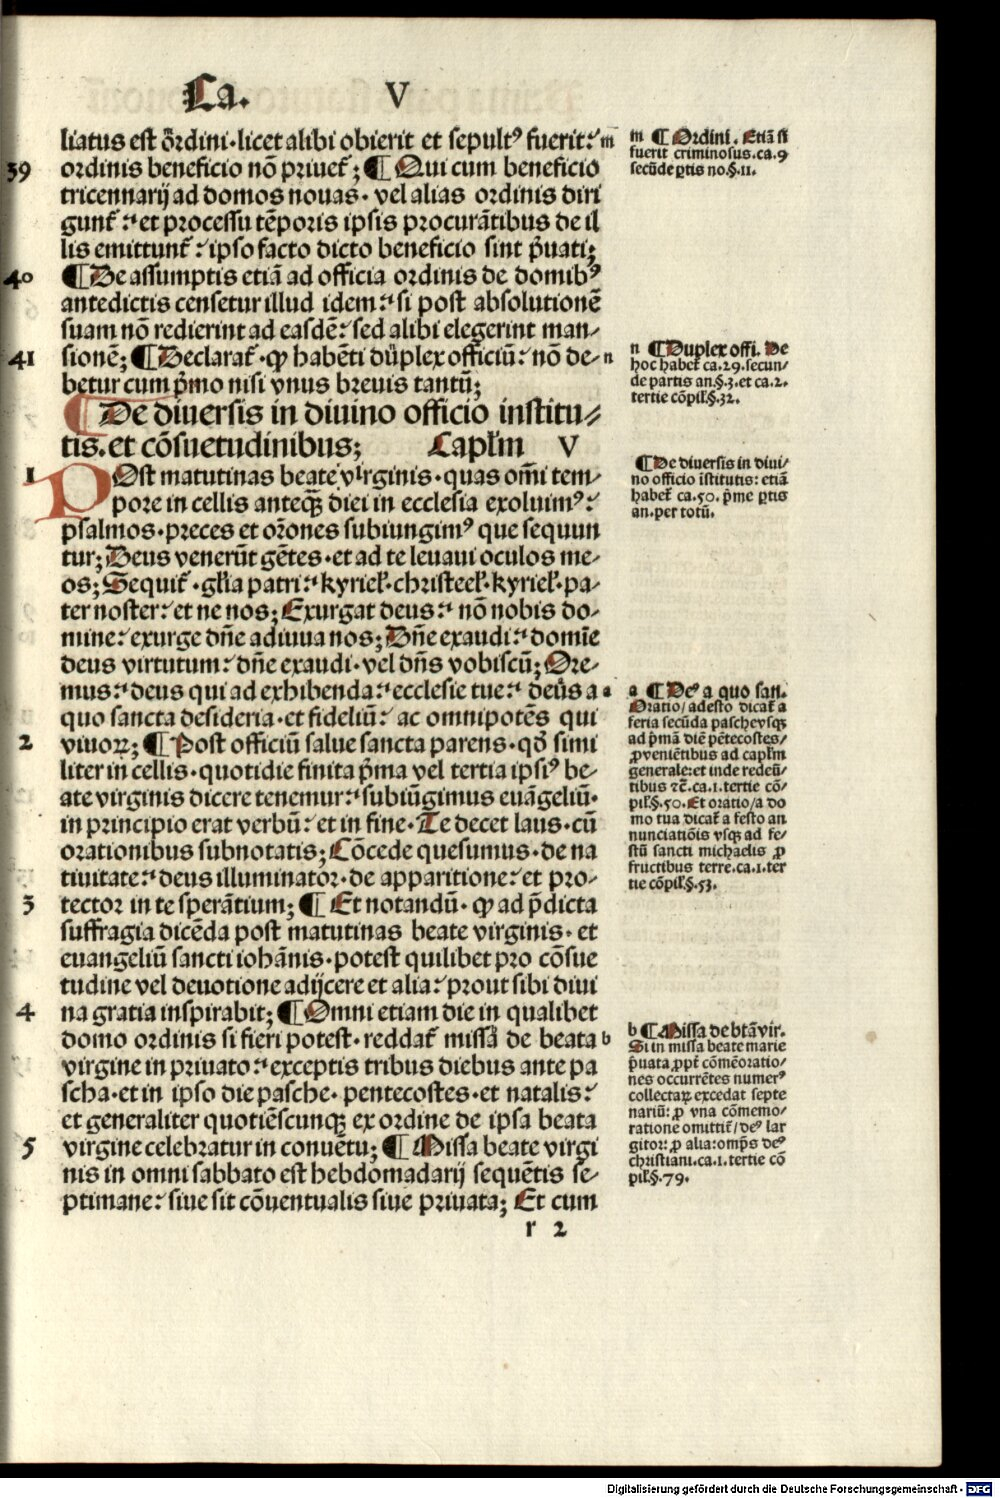 Ca. V
liatus est ordini·licet alibi obierit et sepultꝰ fuerit: m
39 ordinis beneficio nõ priuet̃; ¶ Qui cum beneficio
tricennarij ad domos nouas· vel alias ordinis diri
gunt̃: et processu tẽporis ipsis procurãtibus de il
lis emittunt̃: ipso facto dicto beneficio sint p̃uati;
40 ¶ De assumptis etiã ad officia ordinis de domibꝰ
antedictis censetur illud idem: si post absolutionẽ
suam nõ redierint ad easdẽ: sed alibi elegerint man-
41 sionẽ; ¶ Declarat̃·ꝙ habẽti duplex officiũ: nõ de- n
betur cum p̃mo nisi vnus breuis tantũ;
¶ De diuersis in diuino officio institu-
tis.et cõsuetudinibus; Capłm V
1 POst matutinas beate virginis·quas oĩ tem-
pore in cellis anteꝗ̃ diei in ecclesia exoluimꝰ:
psalmos·preces et orõnes subiungimꝰ que sequun
tur; Deus venerũt gẽtes·et ad te leuaui oculos me-
os; Sequit̃·głia patri: kyrieł·christeeł·kyrieł·pa-
ter noster: et ne nos; Exurgat deus: nõ nobis do-
mine: exurge dñe adiuua nos; Dñe exaudi: domĩe
deus virtutum: dñe exaudi·vel dñs vobiscũ; Ore-
mus: deus qui ad exhibenda: ecclesie tue: deus a a
quo sancta desideria·et fideliũ: ac omnipotẽs qui
2 viuoꝝ; ¶ Post officiũ salue sancta parens·qđ simi
liter in cellis·quotidie finita p̃ma vel tertia ipsiꝰ be-
ate virginis dicere tenemur: subiũgimus euãgeliũ·
in principio erat verbũ: et in fine·Te decet laus·cũ
orationibus subnotatis; Cõcede quesumus·de na
tiuitate: deus illuminator·de apparitione: et pro-
3 tector in te sperãtium; ¶ Et notandũ·ꝙ ad p̃dicta
suffragia dicẽda post matutinas beate virginis·et
euangeliũ sancti iohãnis·potest quilibet pro cõsue
tudine vel deuotione adijcere et alia: prout sibi diui
4 na gratia inspirabit; ¶ Omni etiam die in qualibet
domo ordinis si fieri potest·reddat̃ missa de beata b
virgine in priuato: exceptis tribus diebus ante pa
scha·et in ipso die pasche· pentecostes·et natalis:
et generaliter quotiẽscunqꝫ ex ordine de ipsa beata
5 virgine celebratur in conuẽtu; ¶ Missa beate virgi
nis in omni sabbato est hebdomadarij sequẽtis se-
ptimane: siue sit cõuentualis siue priuata; Et cum
r 2
m ¶ Ordini. Etiã si
fuerit criminosus.ca.9
secũde ꝑtis no.§.11.
n ¶ Duplex offi. De
hoc habet̃ ca.29.secun-
de partis an.§.3.et ca.2.
tertie cõpił.§.32.
¶ De diuersis in diui-
no officio ĩstitutis: etiã
habet̃ ca.50. p̃me ꝑtis
an.per totũ.
a ¶ Deꝰ a quo san.
Oratio/adesto dicat̃ a
feria secũda pasche vsqꝫ
ad p̃mã diẽ pẽtecostes/
ꝓ veniẽtibus ad capłm
generale:et inde redeũ-
tibus ⁊c̃.ca.1.tertie cõ-
pił.§.50.Et oratio/a do
mo tua dicat̃ a festo an
nunciatiõis vsqꝫ ad fe-
stũ sancti michaelis ꝓ
fructibus terre.ca.1.ter
tie cõpił.§.53.
b ¶ Missa de btã vir.
Si in missa beate marie
p̃uata ꝓpt̃ cõmẽoratio-
nes occurrẽtes numerꝰ
collectaꝝ excedat septe
nariũ: ꝓ vna cõmemo-
ratione omittit̃/deꝰ lar
gitor: ꝓ alia:omp̃s deꝰ
christiani.ca.1.tertie cõ
pił.§.79.
Digitalisierung gefördert durch die Deutsche Forschungsgemeinschaft - DFG